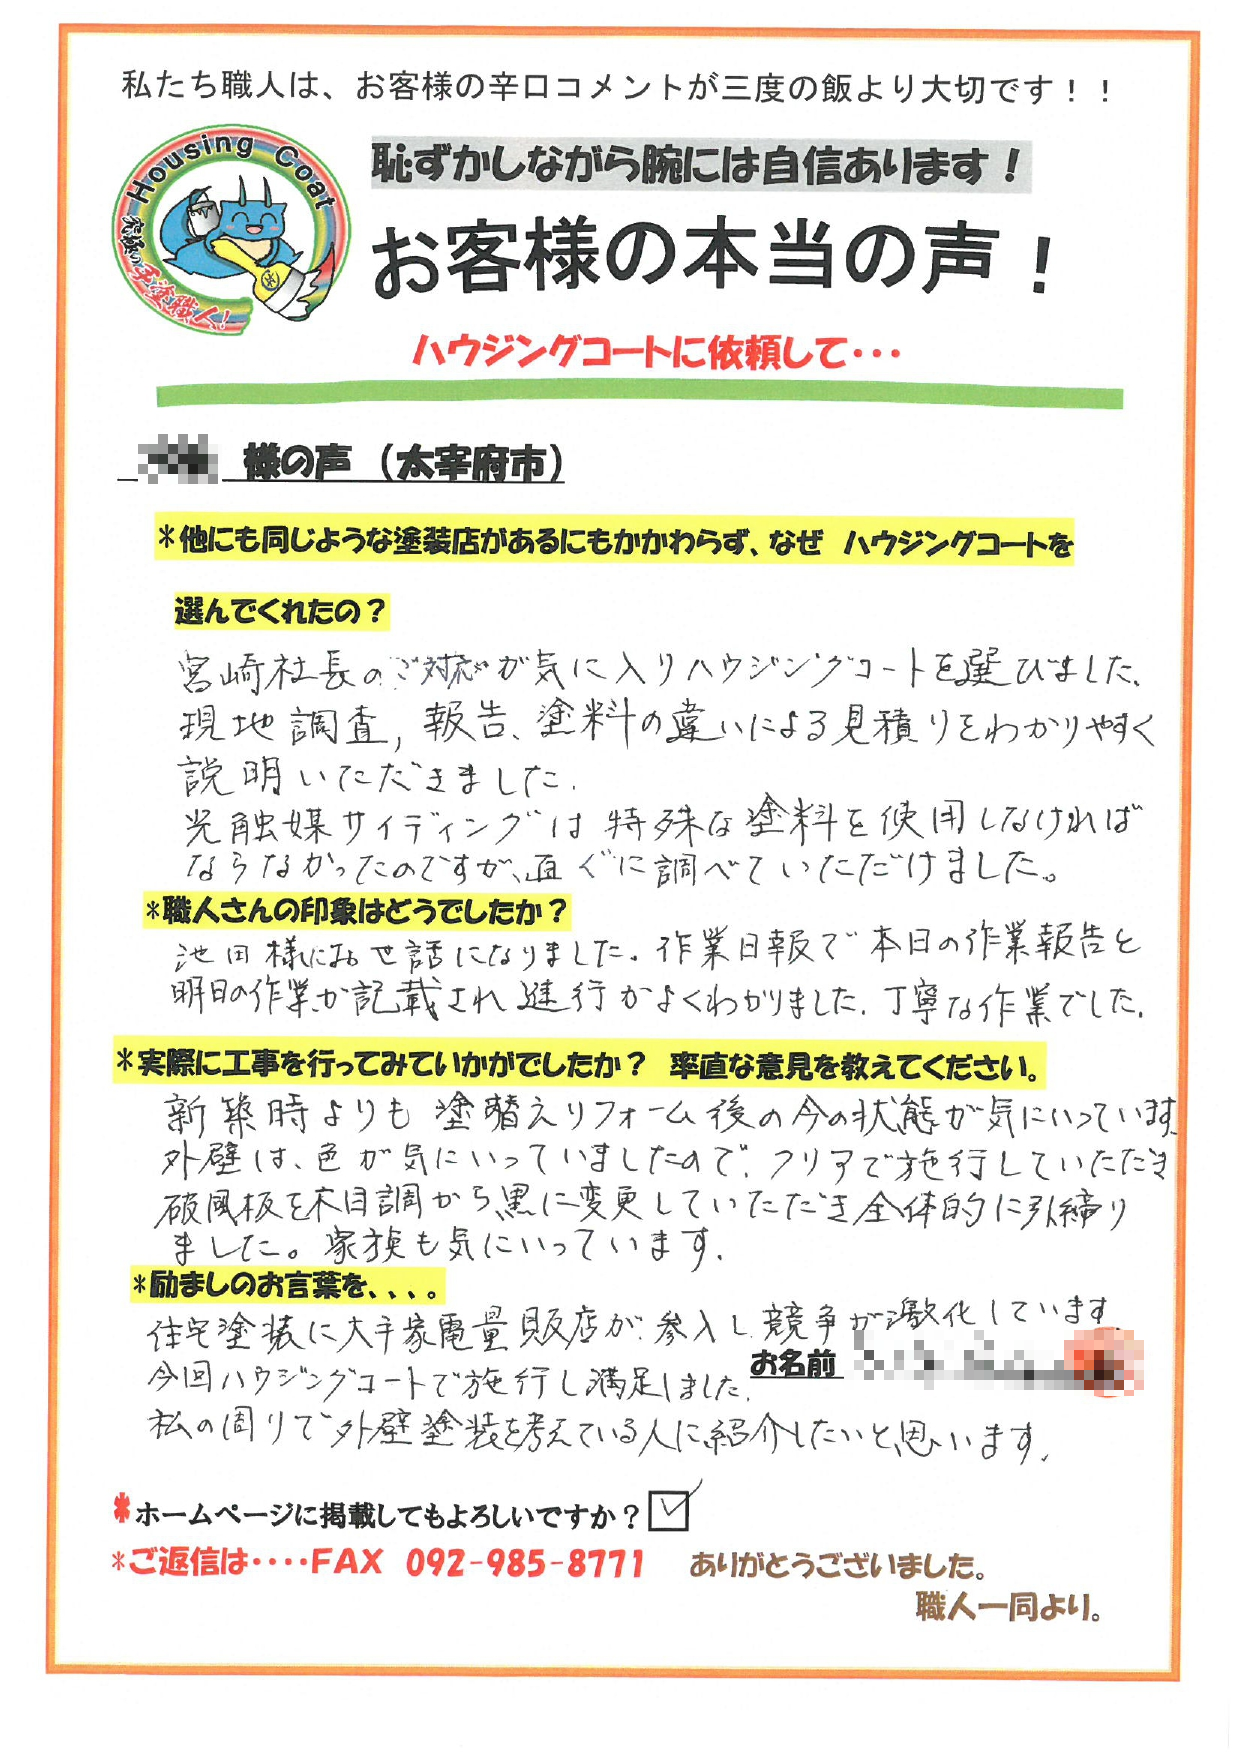 私たち職人は、お客様の辛口コメントが三度の飯より大切です！！
Housing Coat
究極の手塗職人!
恥ずかしながら腕には自信あります！
お客様の本当の声！
ハウジングコートに依頼して・・・
様の声（太宰府市）
＊他にも同じような塗装店があるにもかかわらず、なぜ ハウジングコートを
選んでくれたの？
宮崎社長のご対応が気に入りハウジングコートを選びました。
現地調査，報告、塗料の違いによる見積りをわかりやすく
説明いただきました．
光触媒サイディングは特殊な塗料を使用しなければ
ならなかったのですが、直ぐに調べていただけました。
＊職人さんの印象はどうでしたか？
池田様にお世話になりました．作業日報で本日の作業報告と
明日の作業が記載され進行がよくわかりました．丁寧な作業でした．
＊実際に工事を行ってみていかがでしたか？ 率直な意見を教えてください。
新築時よりも塗替えリフォーム後の今の状態が気にいっています．
外壁は、色が気にいっていましたので．クリアで施行していただき
破風板を木目調から黒に変更していただき全体的に引締り
ました。家族も気にいっています．
＊励ましのお言葉を、、、。
住宅塗装に大手家電量販店が参入し競争が激化しています．
お名前
今回ハウジングコートで施行し満足しました．
私の周りで外壁塗装を考えている人に紹介したいと思います．
＊ホームページに掲載してもよろしいですか？☑
＊ご返信は・・・・FAX 092-985-8771 ありがとうございました。
職人一同より。